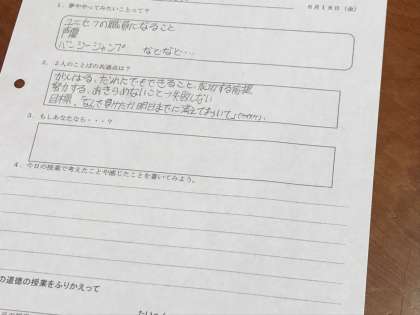 1．夢ややってみたいことって？
6月18日（金）
ユニセフの職員になること
バンジージャンプ　などなど…
2．2人のことばの共通点は？
がんばる、だれたでもできること、成功する
努力する、あきらめないこと→失敗しない
目標、なんで負けたか明日までに考えておいて
3．もしあなたなら・・・？
4．今日の授業で考えたことや感じたことを書いてみよう。
の道徳の授業をふりかえって